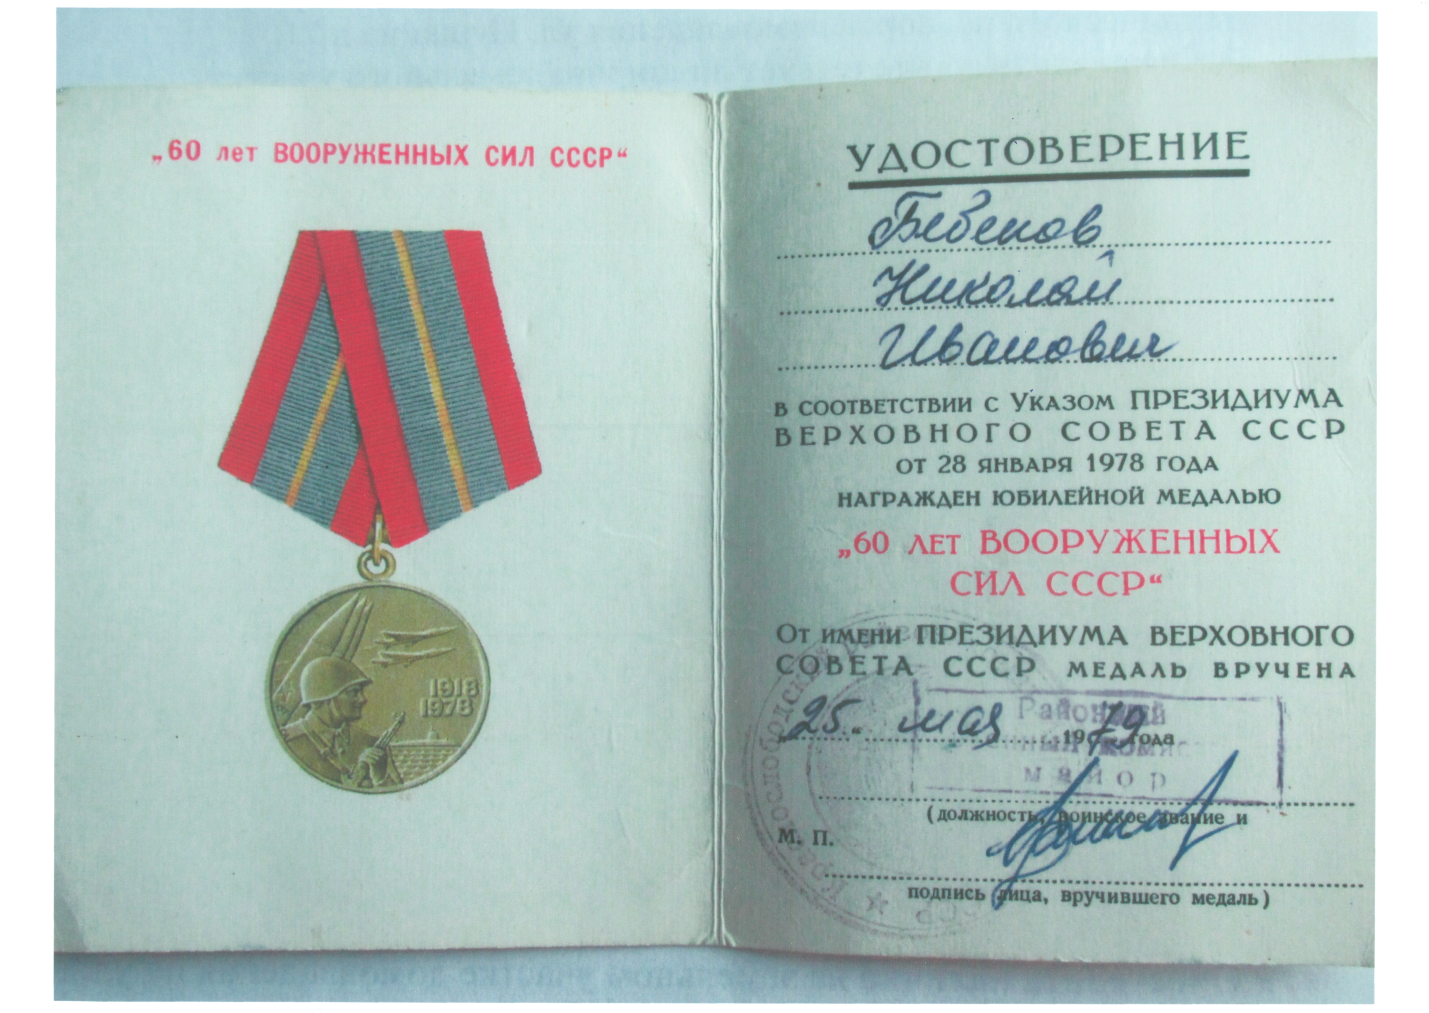 „60 лет ВООРУЖЕННЫХ СИЛ СССР“
1918
1978
УДОСТОВЕРЕНИЕ
Бебенов
Николай
Иванович
В СООТВЕТСТВИИ С УКАЗОМ ПРЕЗИДИУМА
ВЕРХОВНОГО СОВЕТА СССР
ОТ 28 ЯНВАРЯ 1978 ГОДА
НАГРАЖДЕН ЮБИЛЕЙНОЙ МЕДАЛЬЮ
„60 ЛЕТ ВООРУЖЕННЫХ
СИЛ СССР“
ОТ ИМЕНИ ПРЕЗИДИУМА ВЕРХОВНОГО
СОВЕТА СССР МЕДАЛЬ ВРУЧЕНА
25. мая 1979 года
Районный
майор
(должность, воинское звание и
М. П.
подпись лица, вручившего медаль)